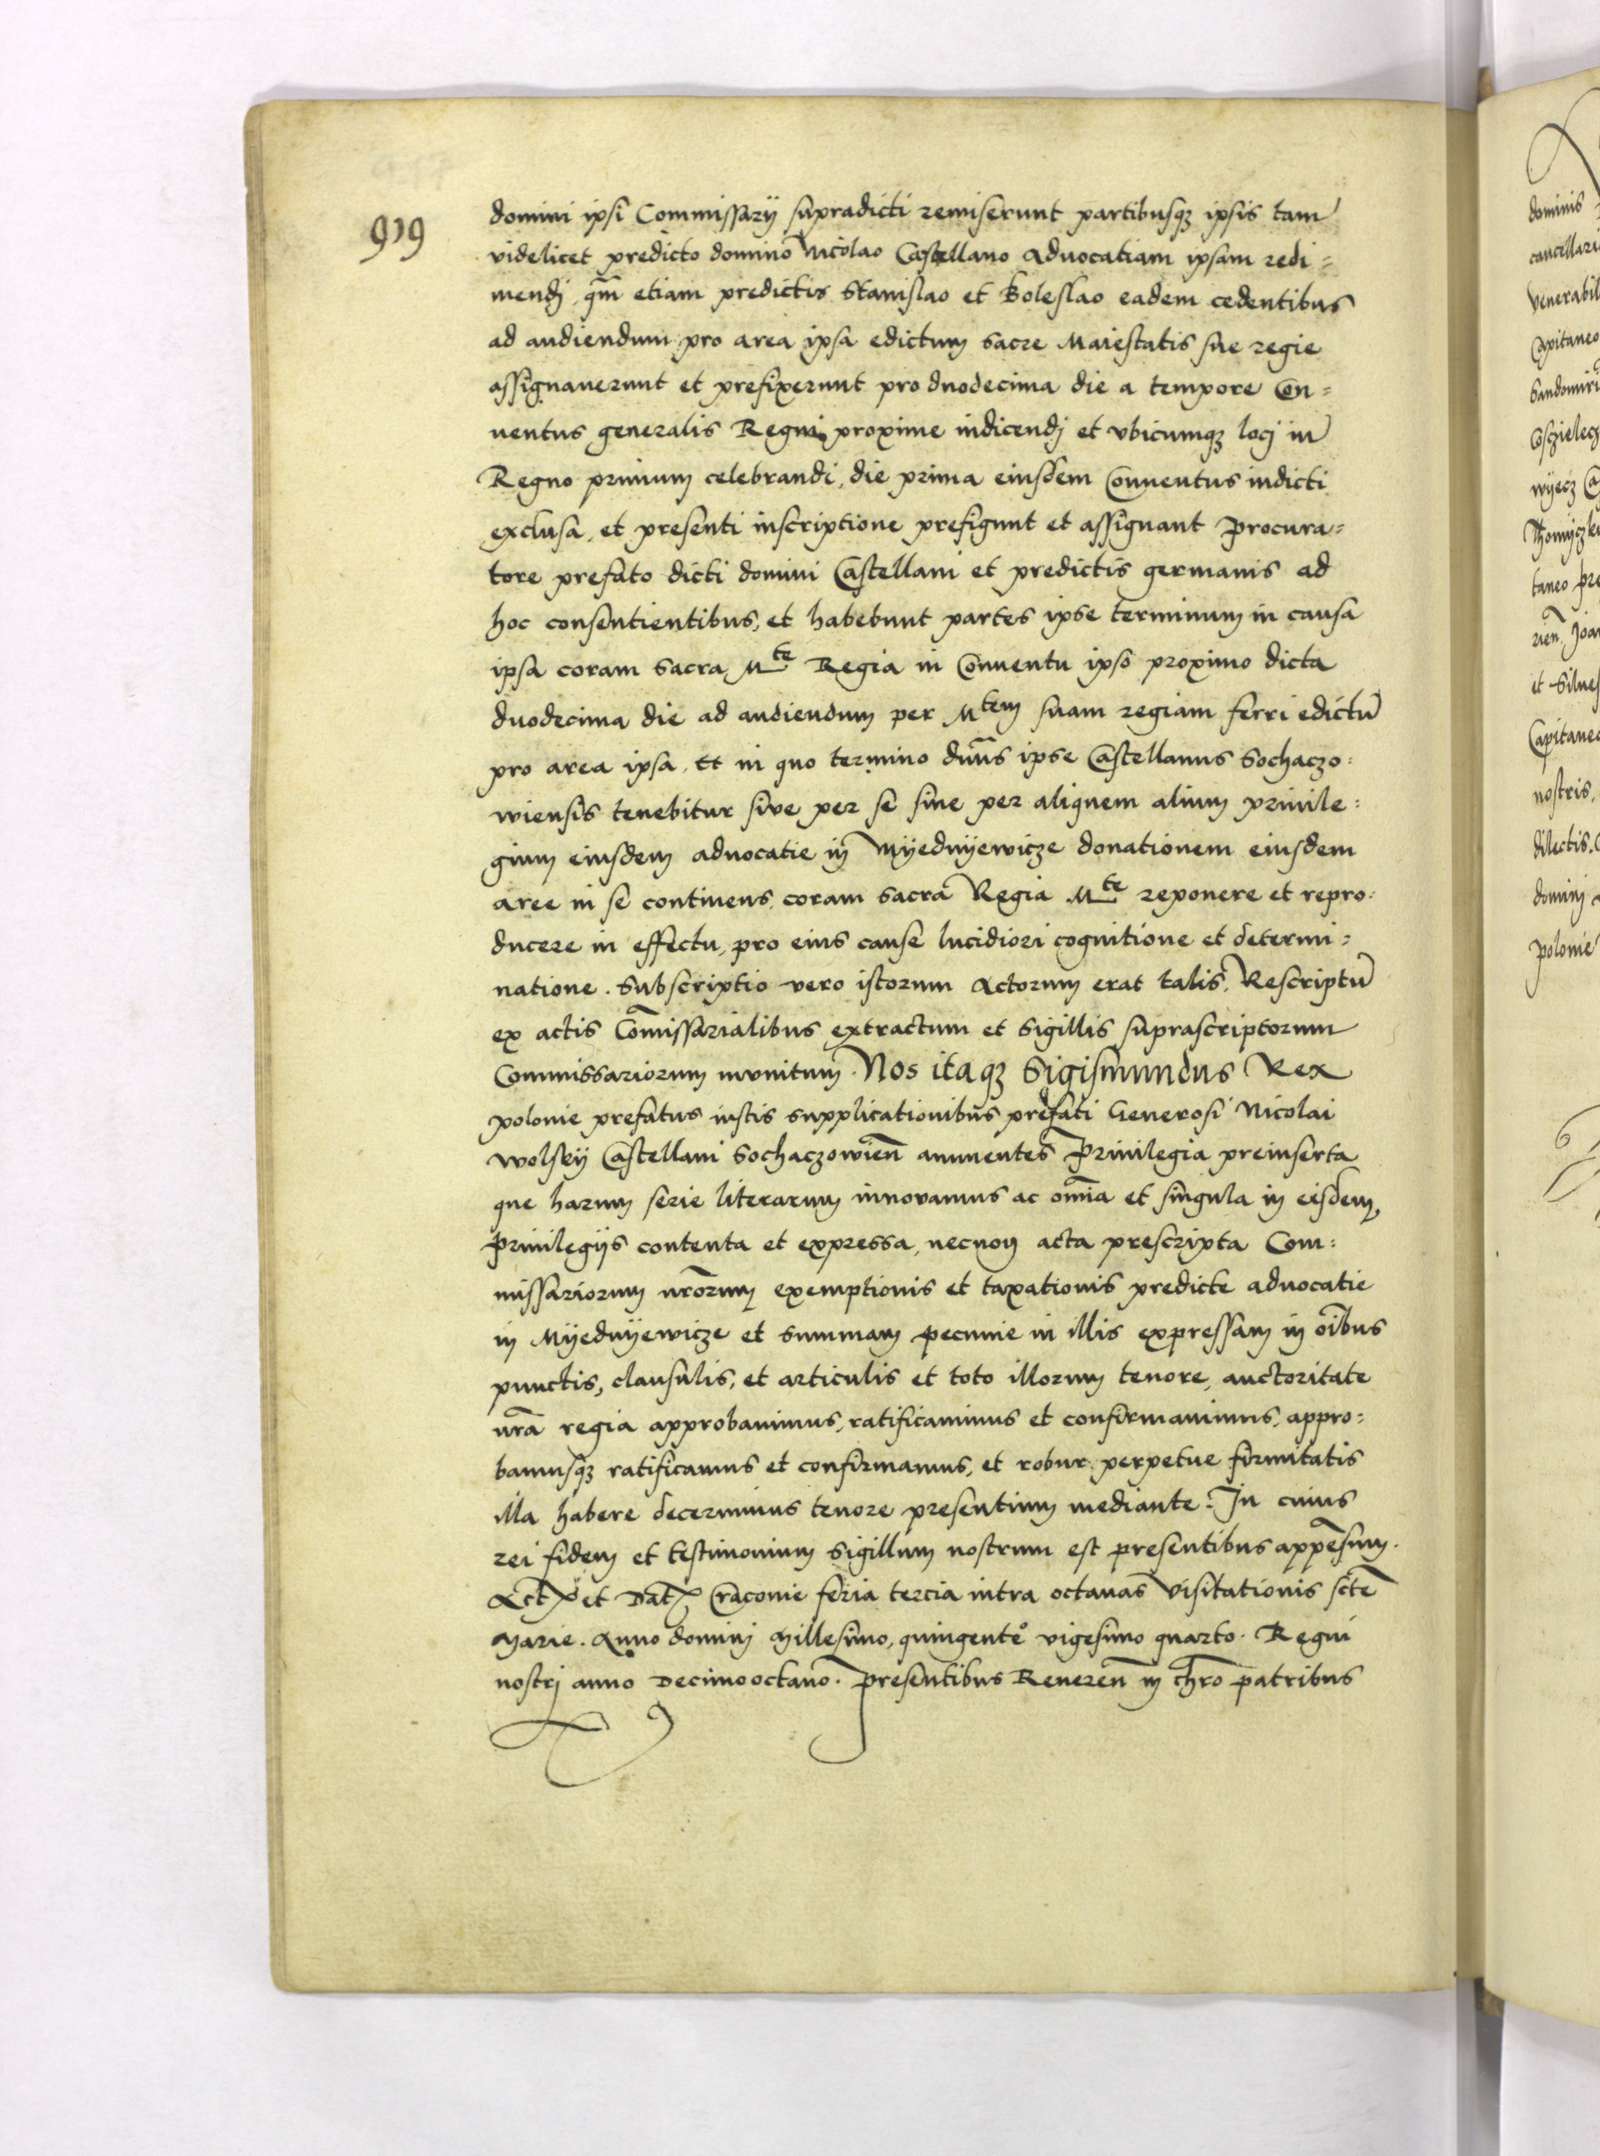 919
domini ipsi Commissarij supradicti remiserunt partibusq; ipsis tam
videlicet predicto domino Nicolao Castellano Advocatiam ipsam redi=
mendj qm̄ etiam predictis Stanislao et Boleslao eadem cedentibus
ad audiendum pro area ipsa edictum sacre Maiestatis sue regie
assignaverunt et prefixerunt pro duodecima die a tempore Con=
uentus generalis Regni proxime indicendj et vbicumq; locj in
Regno primum celebrandi, die prima eiusdem Conuentus indicti
exclusa, et presenti inscriptione prefigunt et assignant Procura=
tore prefato dicti domini Castellani et predictis germanis ad
hoc consentientibus, et habebunt partes ipse terminum in causa
ipsa coram sacra Mte Regia in Conuentu ipso proximo dicta
duodecima die ad audiendum per Mtem suam regiam ferri edictū
pro area ipsa. Et in quo termino dn̄us ipse Castellanus Sochaczo=
wiensis tenebitur sive per se siue per aliquem alium priuile=
gium eiusdem aduocatie in Myednyewicze donationem eiusdem
aree in se continens, coram sacra Regia Mte reponere et repro=
ducere in effectu, pro eius cause lucidiori cognitione et determi=
natione. Subscriptio vero istorum Actorum erat talis. Rescriptū
ex actis Com̄issarialibus extractum et sigillis suprascriptorum
Commissariorum munitum. Nos itaq; Sigismundus Rex
polonie prefatus iustis supplicationibus prefati Generosi Nicolai
Wolsky Castellani Sochaczowien̄ annuentes Priuilegia preinserta
que harum serie literarum innovamus ac om̄ia et singula in eisdem
Priuilegijs contenta et expressa, necnon acta prescripta Com=
missariorum nr̄orum exemptionis et taxationis predicte aduocatie
in Myednyewicze et summam pecunie in illis expressam in oībus
punctis, clausulis, et articulis et toto illorum tenore, auctoritate
nr̄a regia approbauimus, ratificauimus et confirmauimus, appro=
bamusq; ratificamus et confirmamus, et robur perpetue firmitatis
illa habere decernimus tenore presentium mediante. In cuius
rei fidem et testimonium Sigillum nostrum est presentibus appēsum.
Act; et Dat; Cracouie feria tercia intra octauas Visitationis sctē
Marie. Anno dominj Millesimo, quingenteo vigesimo quarto. Regni
nostrj anno Decimooctauo. Presentibus Reueren̄ in chr̄o patribus